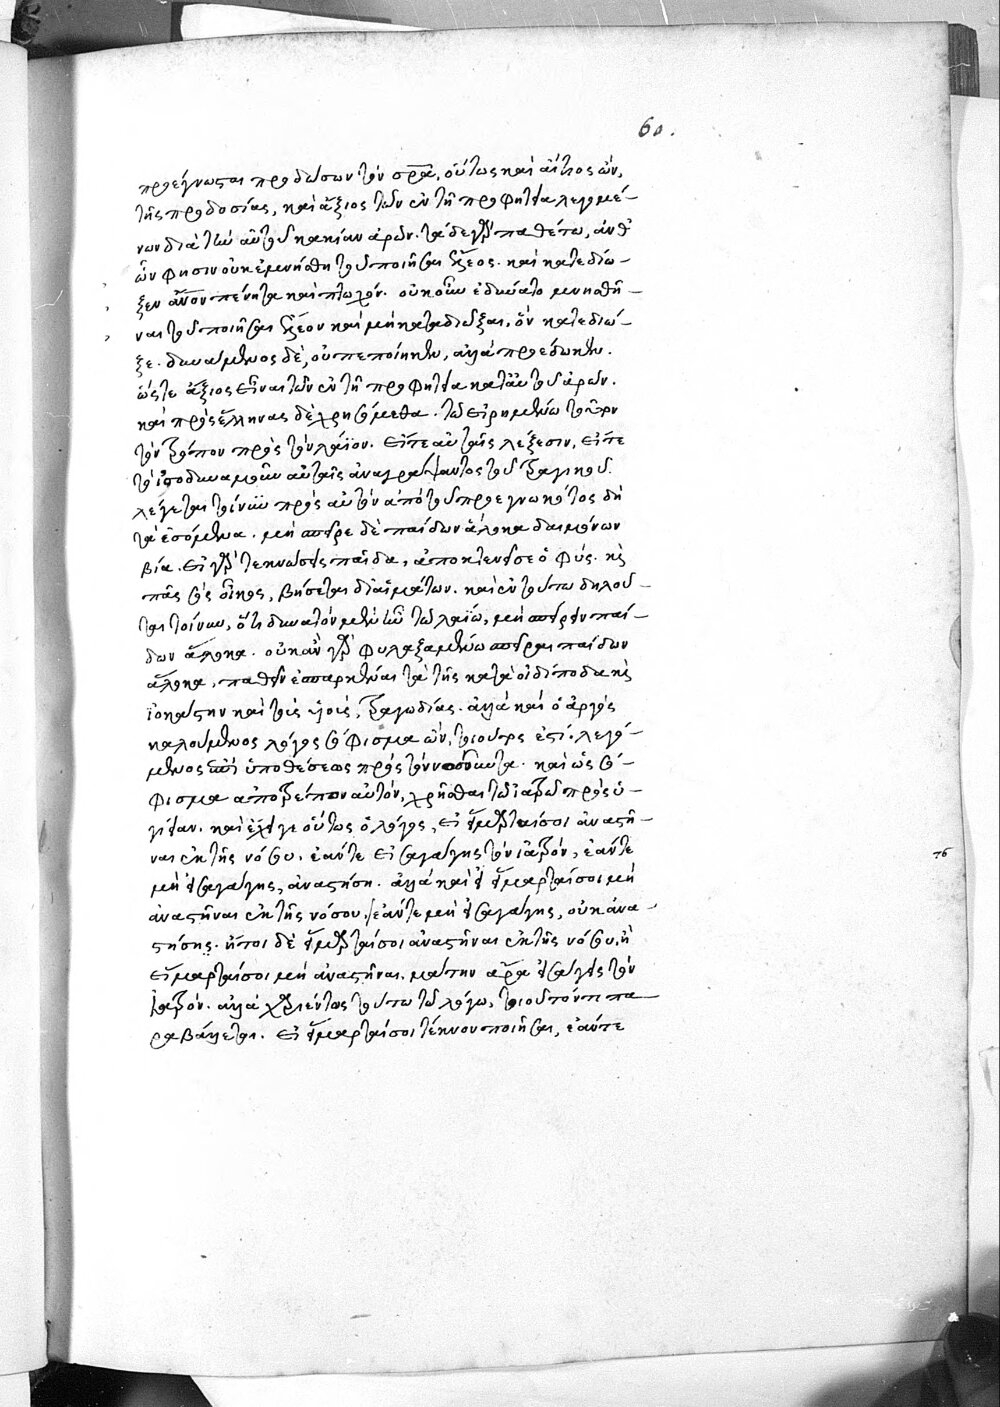 60.
προέγνωσται προδώσων τὸν σρ̅α, οὕτως καὶ αἴτιος ὢν,
τῆς προδοσίας, καὶ ἄξιος τῶν ἐν τῇ προφητεία λεγομέ-
νων διὰ τὴν αὐτοῦ κακίαν ἀρῶν. τάδε γὰρ πάθέτω, ἀνθ'
ὧν φησιν οὐκ ἐμνήσθη τοῦ ποιῆσαι ἔλεος. καὶ κατεδίω-
ξεν ἄν̅ον πένητα καὶ πτωχόν. οὐκοῦν ἐδύνατο μνησθῆ-
ναι τοῦ ποιῆσαι ἔλεον καὶ μὴ καταδιῶξαι, ὃν κατεδίω-
ξε. δυνάμενος δὲ, οὐ πεποίηκεν, ἀλλὰ προέδωκεν.
ὥστε ἄξιος εἶναι τῶν ἐν τῇ προφητεία κατ' αὐτοῦ ἀρῶν.
καὶ πρὸς ἕλληνας δὲ χρησόμεθα. τῶ εἰρημένω τοῦτον
τὸν τρόπον πρὸς τὸν λάϊον. εἴτε αὐταῖς λέξεσιν, εἴτε
τὸ ἰσοδυναμοῦν αὐταῖς ἀναγράψαντος τοῦ τραγικοῦ.
λέγεται τοίνυν πρὸς αὐτὸν ἀπὸ τοῦ προεγνωκότος δὴ
τὰ ἐσόμενα. μὴ σπεῖρε δὲ παίδων ἄλοκα δαιμόνων
βία. εἰ γὰρ τεκνώσεις παῖδα, ἀποκτενεῖ σε ὁ φύς. κὶ
πᾶς σὸς οἶκος, βήσεται δι' αἱμάτων. καὶ ἐν τούτω δηλοῦ-
ται τοίνυν, ὅτι δυνατὸν μὲν ἦν τῶ λαίω, μὴ σπείρειν παί-
δων ἄλοκα. οὐκ ἂν γὰρ φυλαξαμένω σπεῖραι παίδων
ἄλοκα, παθεῖν ἐσπαρκέναι τὰ τῆς κατὰ οἰδίποδα κὶ
ἰοκάστην καὶ τοὺς υἱοὺς, τραγωδίας. ἀλλὰ καὶ ὁ ἀργὸς
καλούμενος λόγος σόφισμα ὢν, τοιοῦτος ἐστί. λεγό-
μενος ἐπὶ ὑποθέσεως πρὸς τὸν νοσοῦντα. καὶ ὡς σό-
φισμα ἀποτρέπων αὐτὸν, χρῆσθαι τῶ ἰατρῶ πρὸς ὑ-
γίειαν. καὶ ἔχει γε οὕτως ὁ λόγος, εἰ εἵμαρταί σοι ἀναστῆ-
ναι ἐκ τῆς νόσου. ἐάντε εἰσαγάγης τὸν ἰατρὸν, ἐάντε
μὴ εἰσαγάγης, ἀναστήση. ἀλλὰ καὶ εἰ εἵμαρταί σοι μὴ
ἀναστῆναι ἐκ τῆς νόσου, ἐάντε μὴ εἰσαγάγης, οὐκ ἀνα-
στήσης. ἤτοι δὲ εἵμαρταί σοι ἀναστῆναι ἐκ τῆς νόσου, ἢ
εἵμαρταί σοι μὴ ἀναστῆναι. μάτην ἄρα εἰσάγεις τὸν
ἰατρόν. ἀλλὰ χαριέντως τούτω τῶ λόγω, τοιοῦτόν τι πα-
ραβάλλεται. εἰ εἵμαρταί σοι τέκνον ποιῆσαι, ἐάντε
76